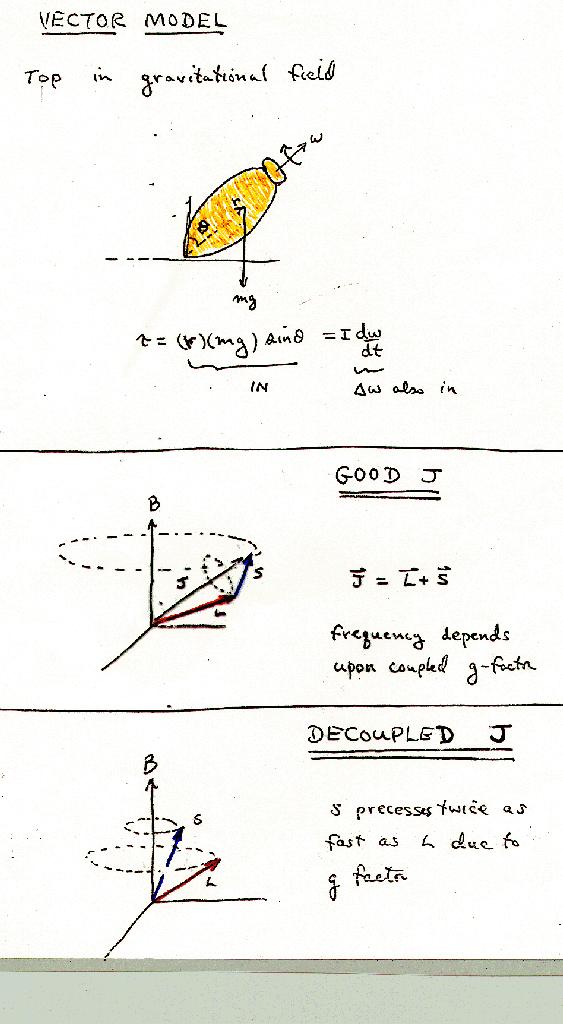 VECTOR MODEL
Top in gravitational field
ω
r
θ
mg
τ = (r)(mg) sinθ = I dω/dt
IN
Δω also in
GOOD J
B
J
S
L
J⃗ = L⃗ + S⃗
frequency depends
upon coupled g-factor
DECOUPLED J
B
S
L
S precesses twice as
fast as L due to
g factor